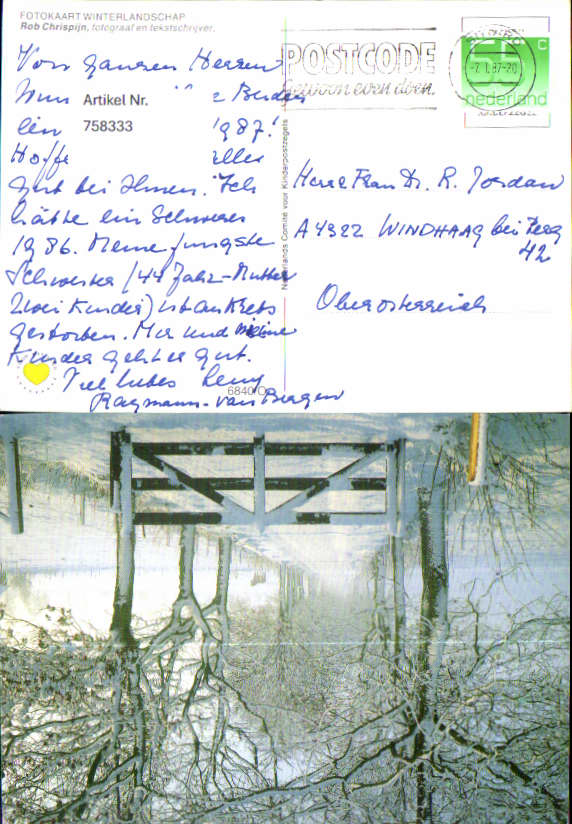 FOTOKAART WINTERLANDSCHAP
Rob Chrispijn, fotograaf en tekstschrijver.
Von ganzen Herzen
Artikel Nr.
758333
ein 1987!
Hoffe alles
gut bei Ihnen. Ich
hätte ein Schweres
1986. Meine jungste
Schwester (44 Jahr-Mutter
zwei Kinder) ist an Krebs
gestorben. Mir und meine
Kinder geht es gut.
Viel liebes Leny
Raymann-van Bergen
6840/O
Nederlands Comité voor Kinderpostzegels
POSTCODE
gewoon even doen.
-7.1.87-20
55 c
nederland
Herr & Frau Dr. R. Jordan
A 4322 WINDHAAG bei Perg
42
Oberösterreich